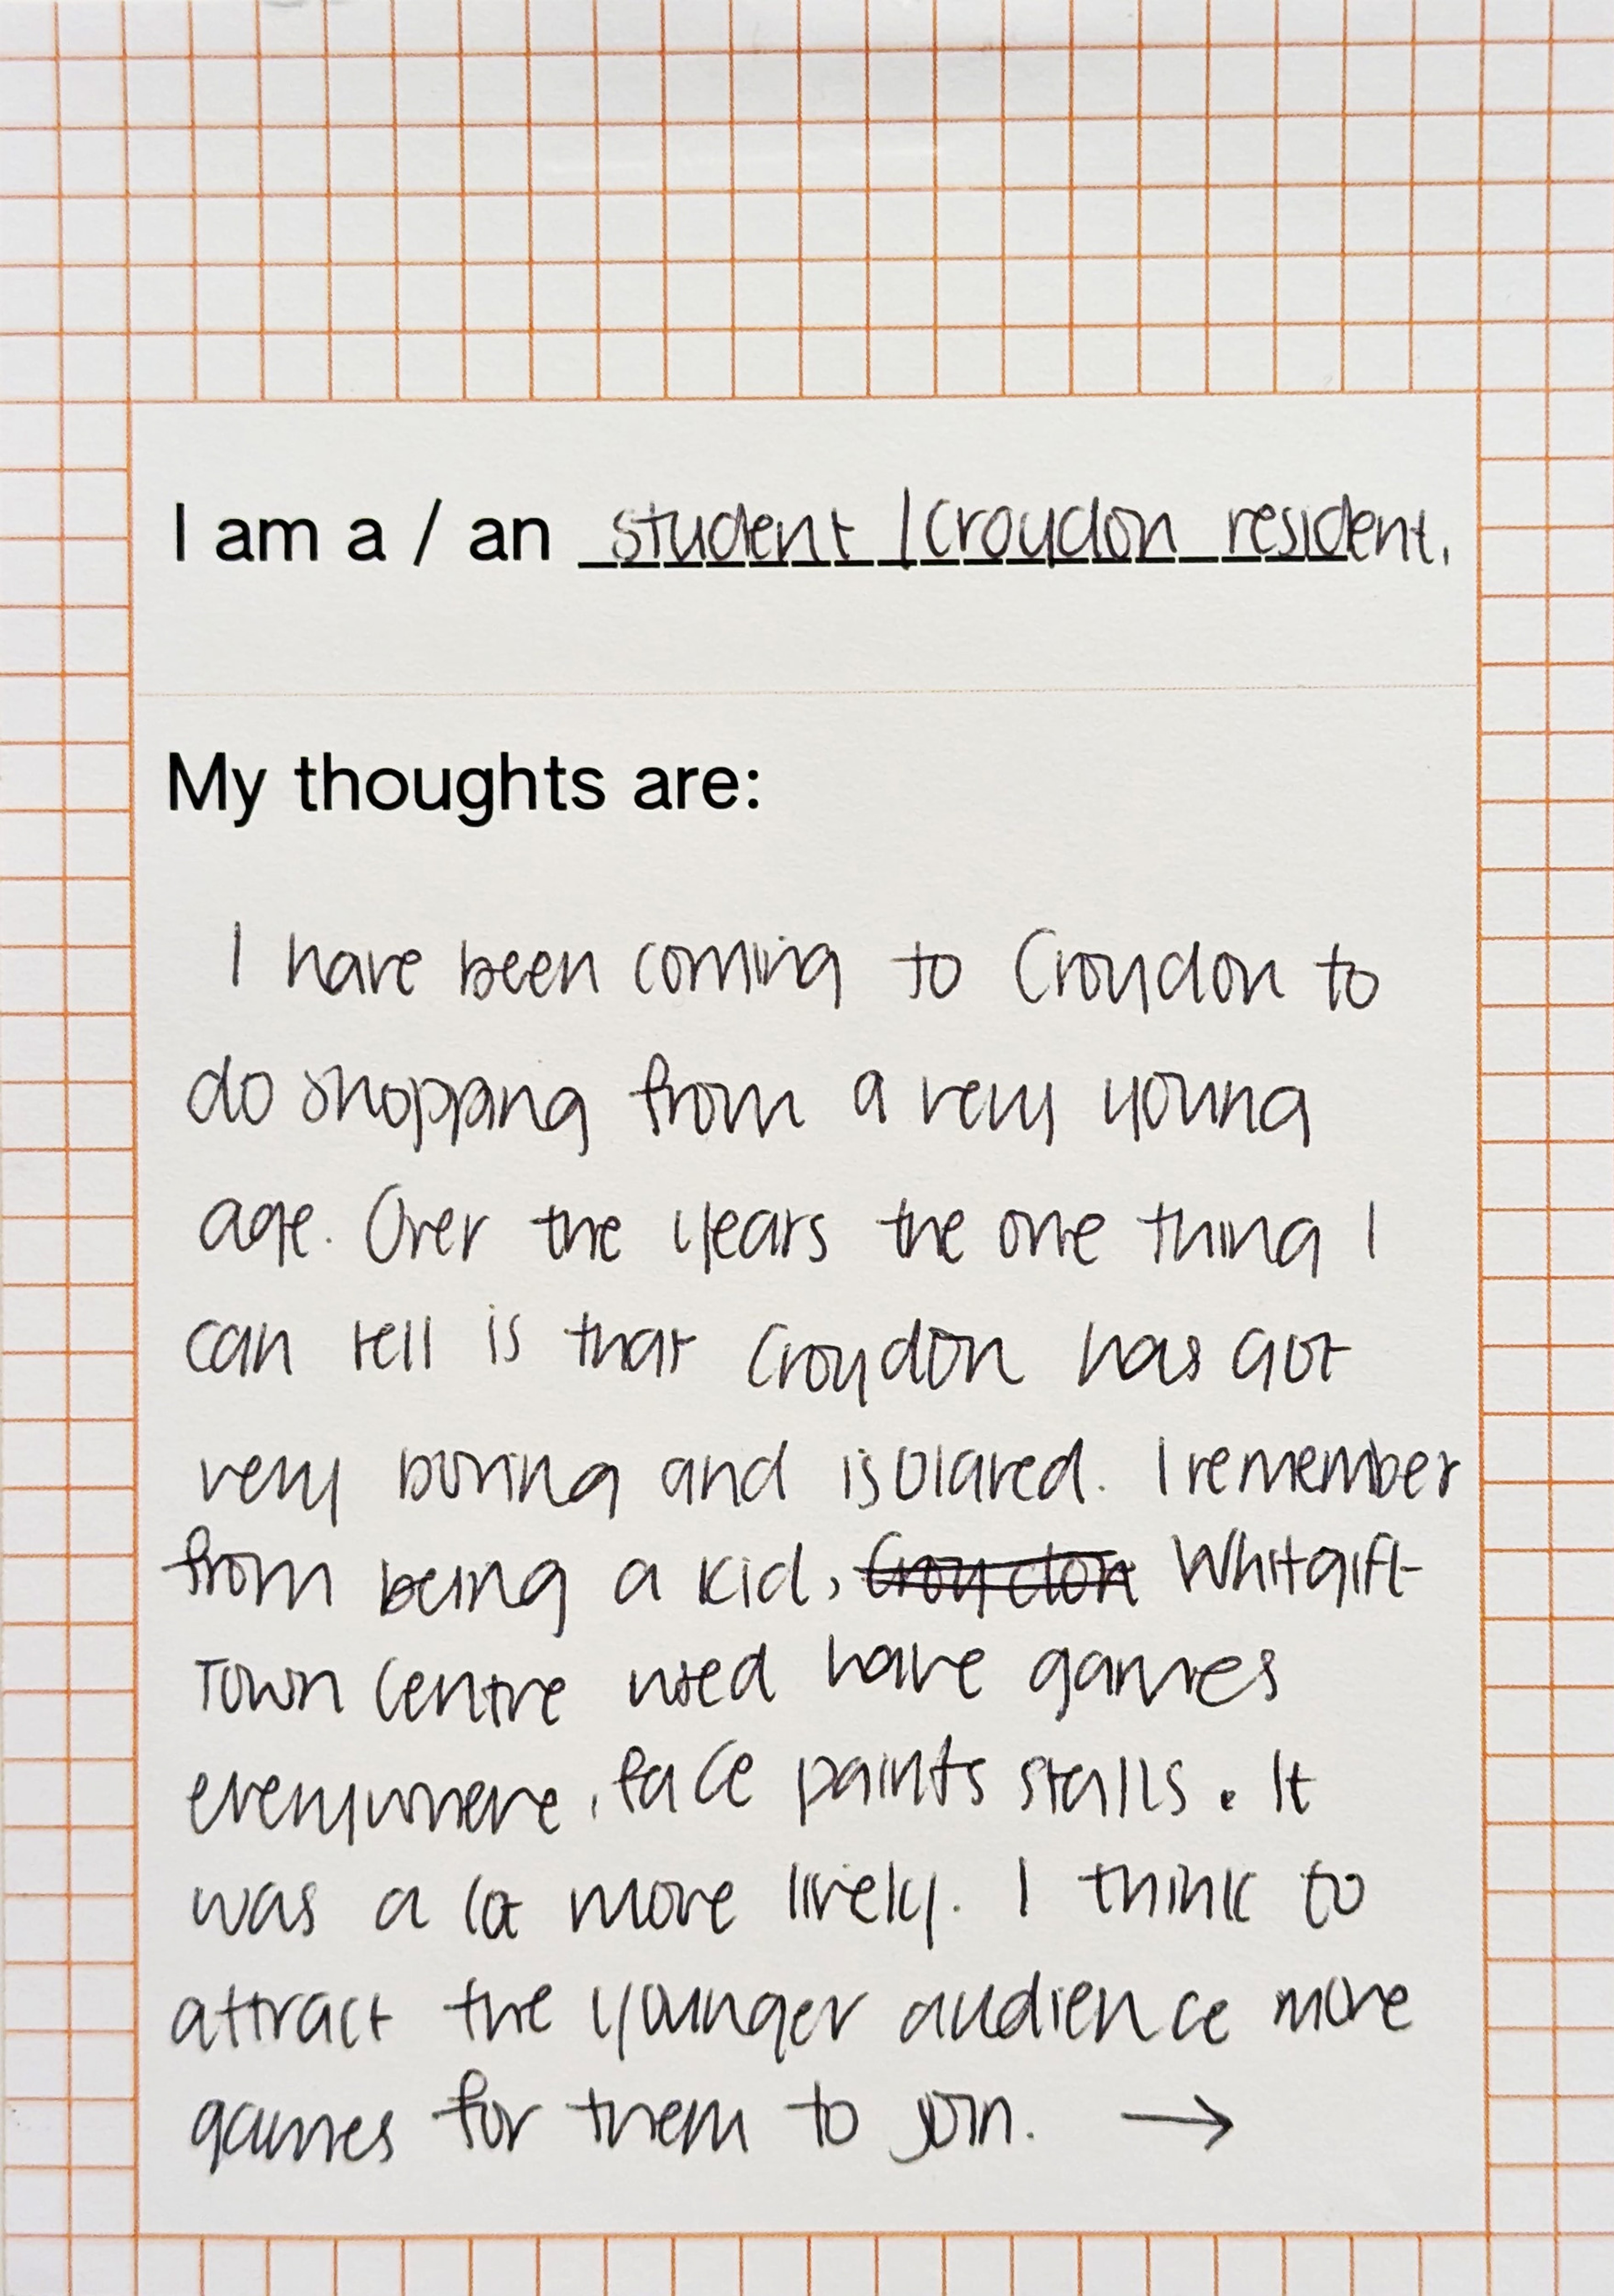 I am a / an student / Croydon resident.
My thoughts are:
I have been coming to Croydon to
do shopping from a very young
age. Over the years the one thing I
can tell is that Croydon has got
very boring and isolated. I remember
from being a kid, Croydon Whitgift
Town Centre used have games
everywhere, face paints stalls. It
was a lot more lively. I think to
attract the younger audience more
games for them to join. →